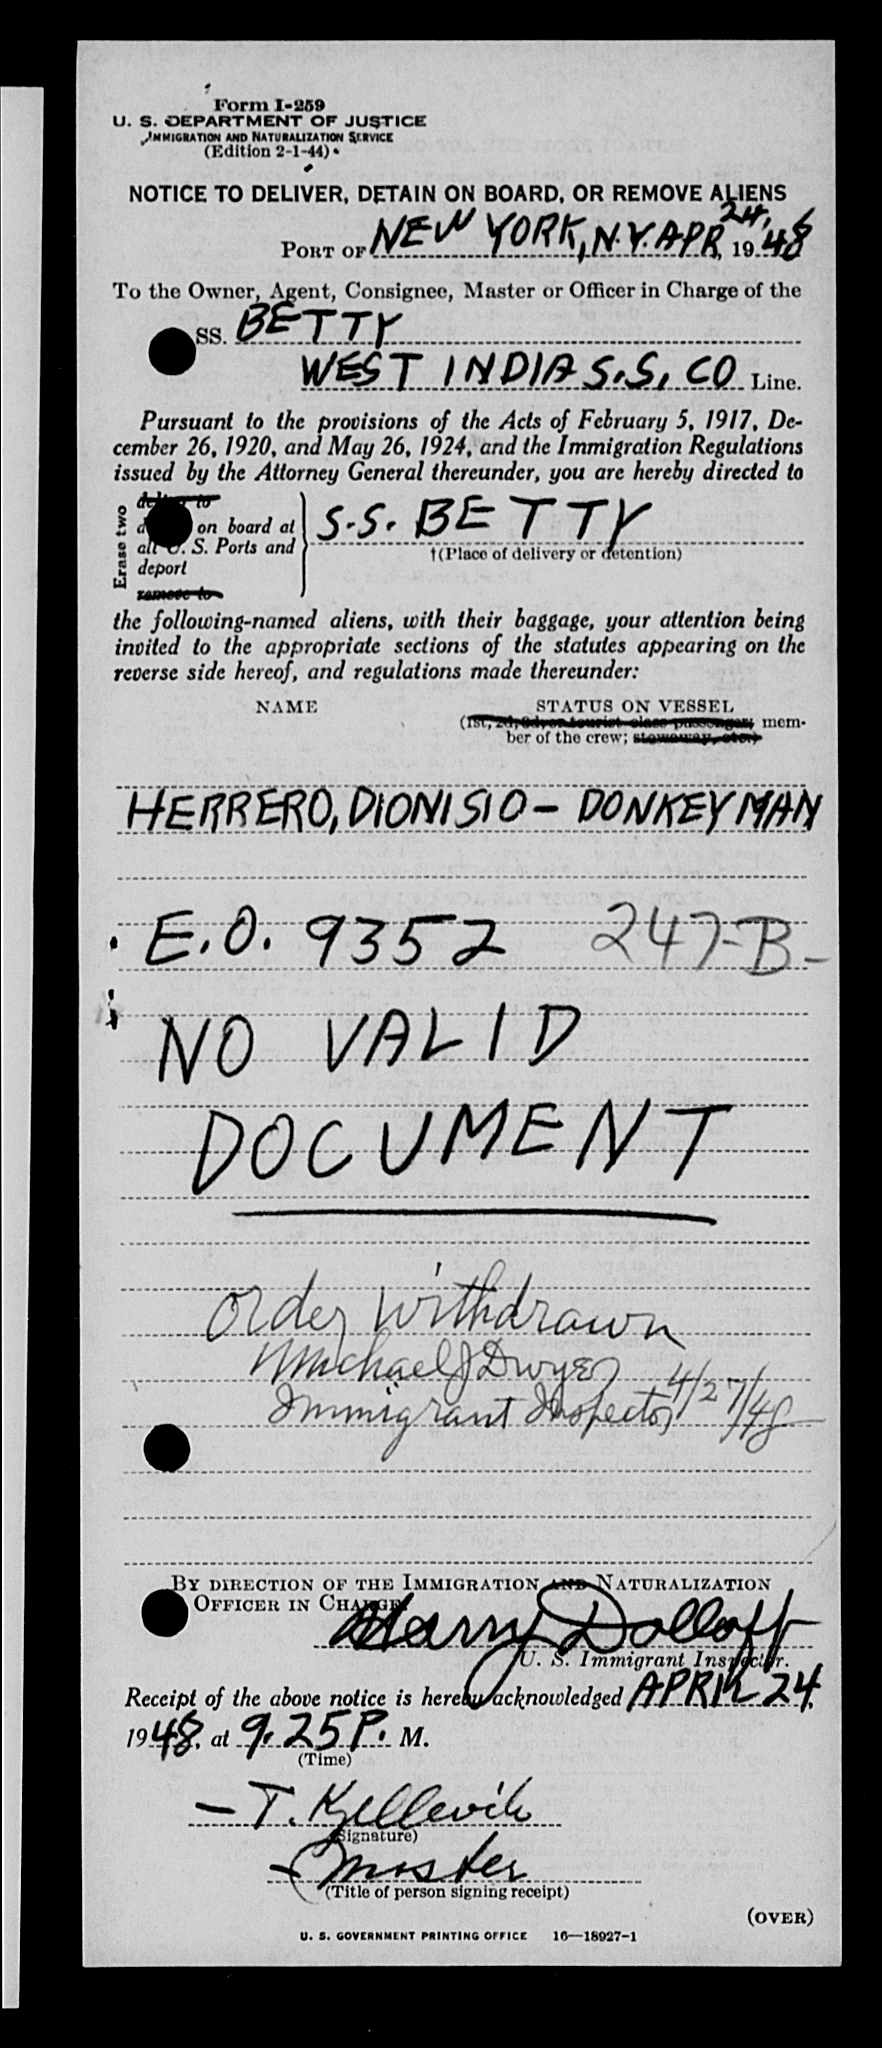 Form I-259
U. S. DEPARTMENT OF JUSTICE
IMMIGRATION AND NATURALIZATION SERVICE
(Edition 2-1-44)
NOTICE TO DELIVER, DETAIN ON BOARD, OR REMOVE ALIENS
PORT OF NEW YORK, N.Y. APR 24, 1948
To the Owner, Agent, Consignee, Master or Officer in Charge of the
SS. BETTY
WEST INDIA S.S. CO Line.
Pursuant to the provisions of the Acts of February 5, 1917, De-
cember 26, 1920, and May 26, 1924, and the Immigration Regulations
issued by the Attorney General thereunder, you are hereby directed to
Erase two
deliver to
on board at
all U. S. Ports and
deport
remove to
S.S. BETTY
†(Place of delivery or detention)
the following-named aliens, with their baggage, your attention being
invited to the appropriate sections of the statutes appearing on the
reverse side hereof, and regulations made thereunder:
NAME STATUS ON VESSEL
(1st, 2d, 3d, or tourist class passenger; mem-
ber of the crew; stowaway, etc.)
HERRERO, DIONISIO - DONKEYMAN
E.O. 9352 247-B-
NO VALID
DOCUMENT
Order Withdrawn
Michael J Dwyer
Immigrant Inspector 4/27/48
BY DIRECTION OF THE IMMIGRATION AND NATURALIZATION
OFFICER IN CHARGE.
Harry Dolloff
U. S. Immigrant Inspector.
Receipt of the above notice is hereby acknowledged APRIL 24,
1948, at 9.25 P. M.
(Time)
- T. Kjellevik
(Signature)
- Master
(Title of person signing receipt)
(OVER)
U. S. GOVERNMENT PRINTING OFFICE 16—18927-1